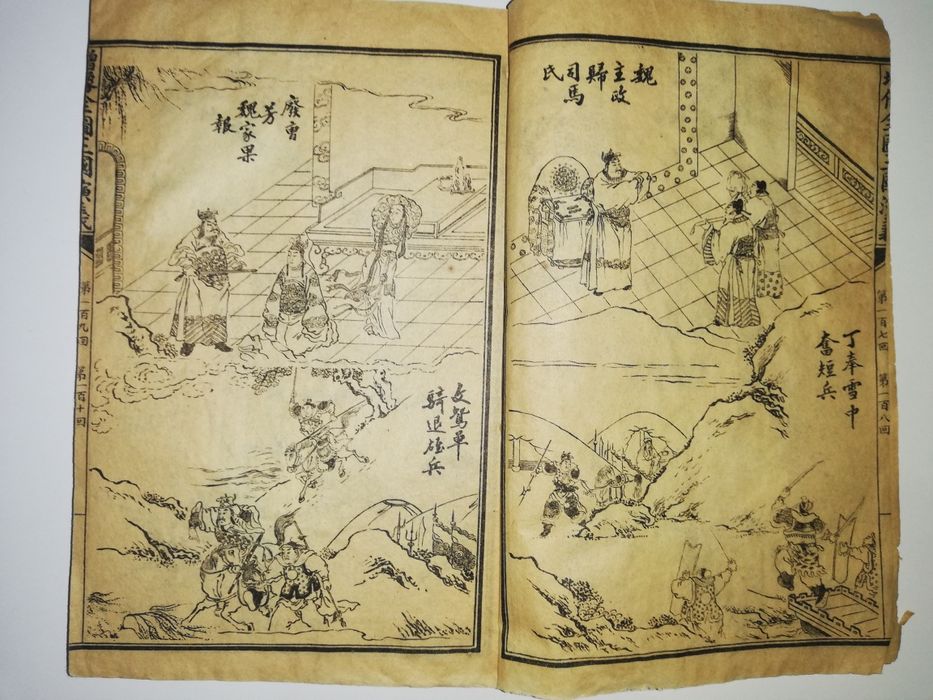 魏
主政
歸
司馬
氏
丁奉雪中
奮短兵
第一百七回
第一百八回
廢曹
芳
魏家果
報
文鴦單
騎退雄兵
全圖三國演義
第一百九回
第一百十回